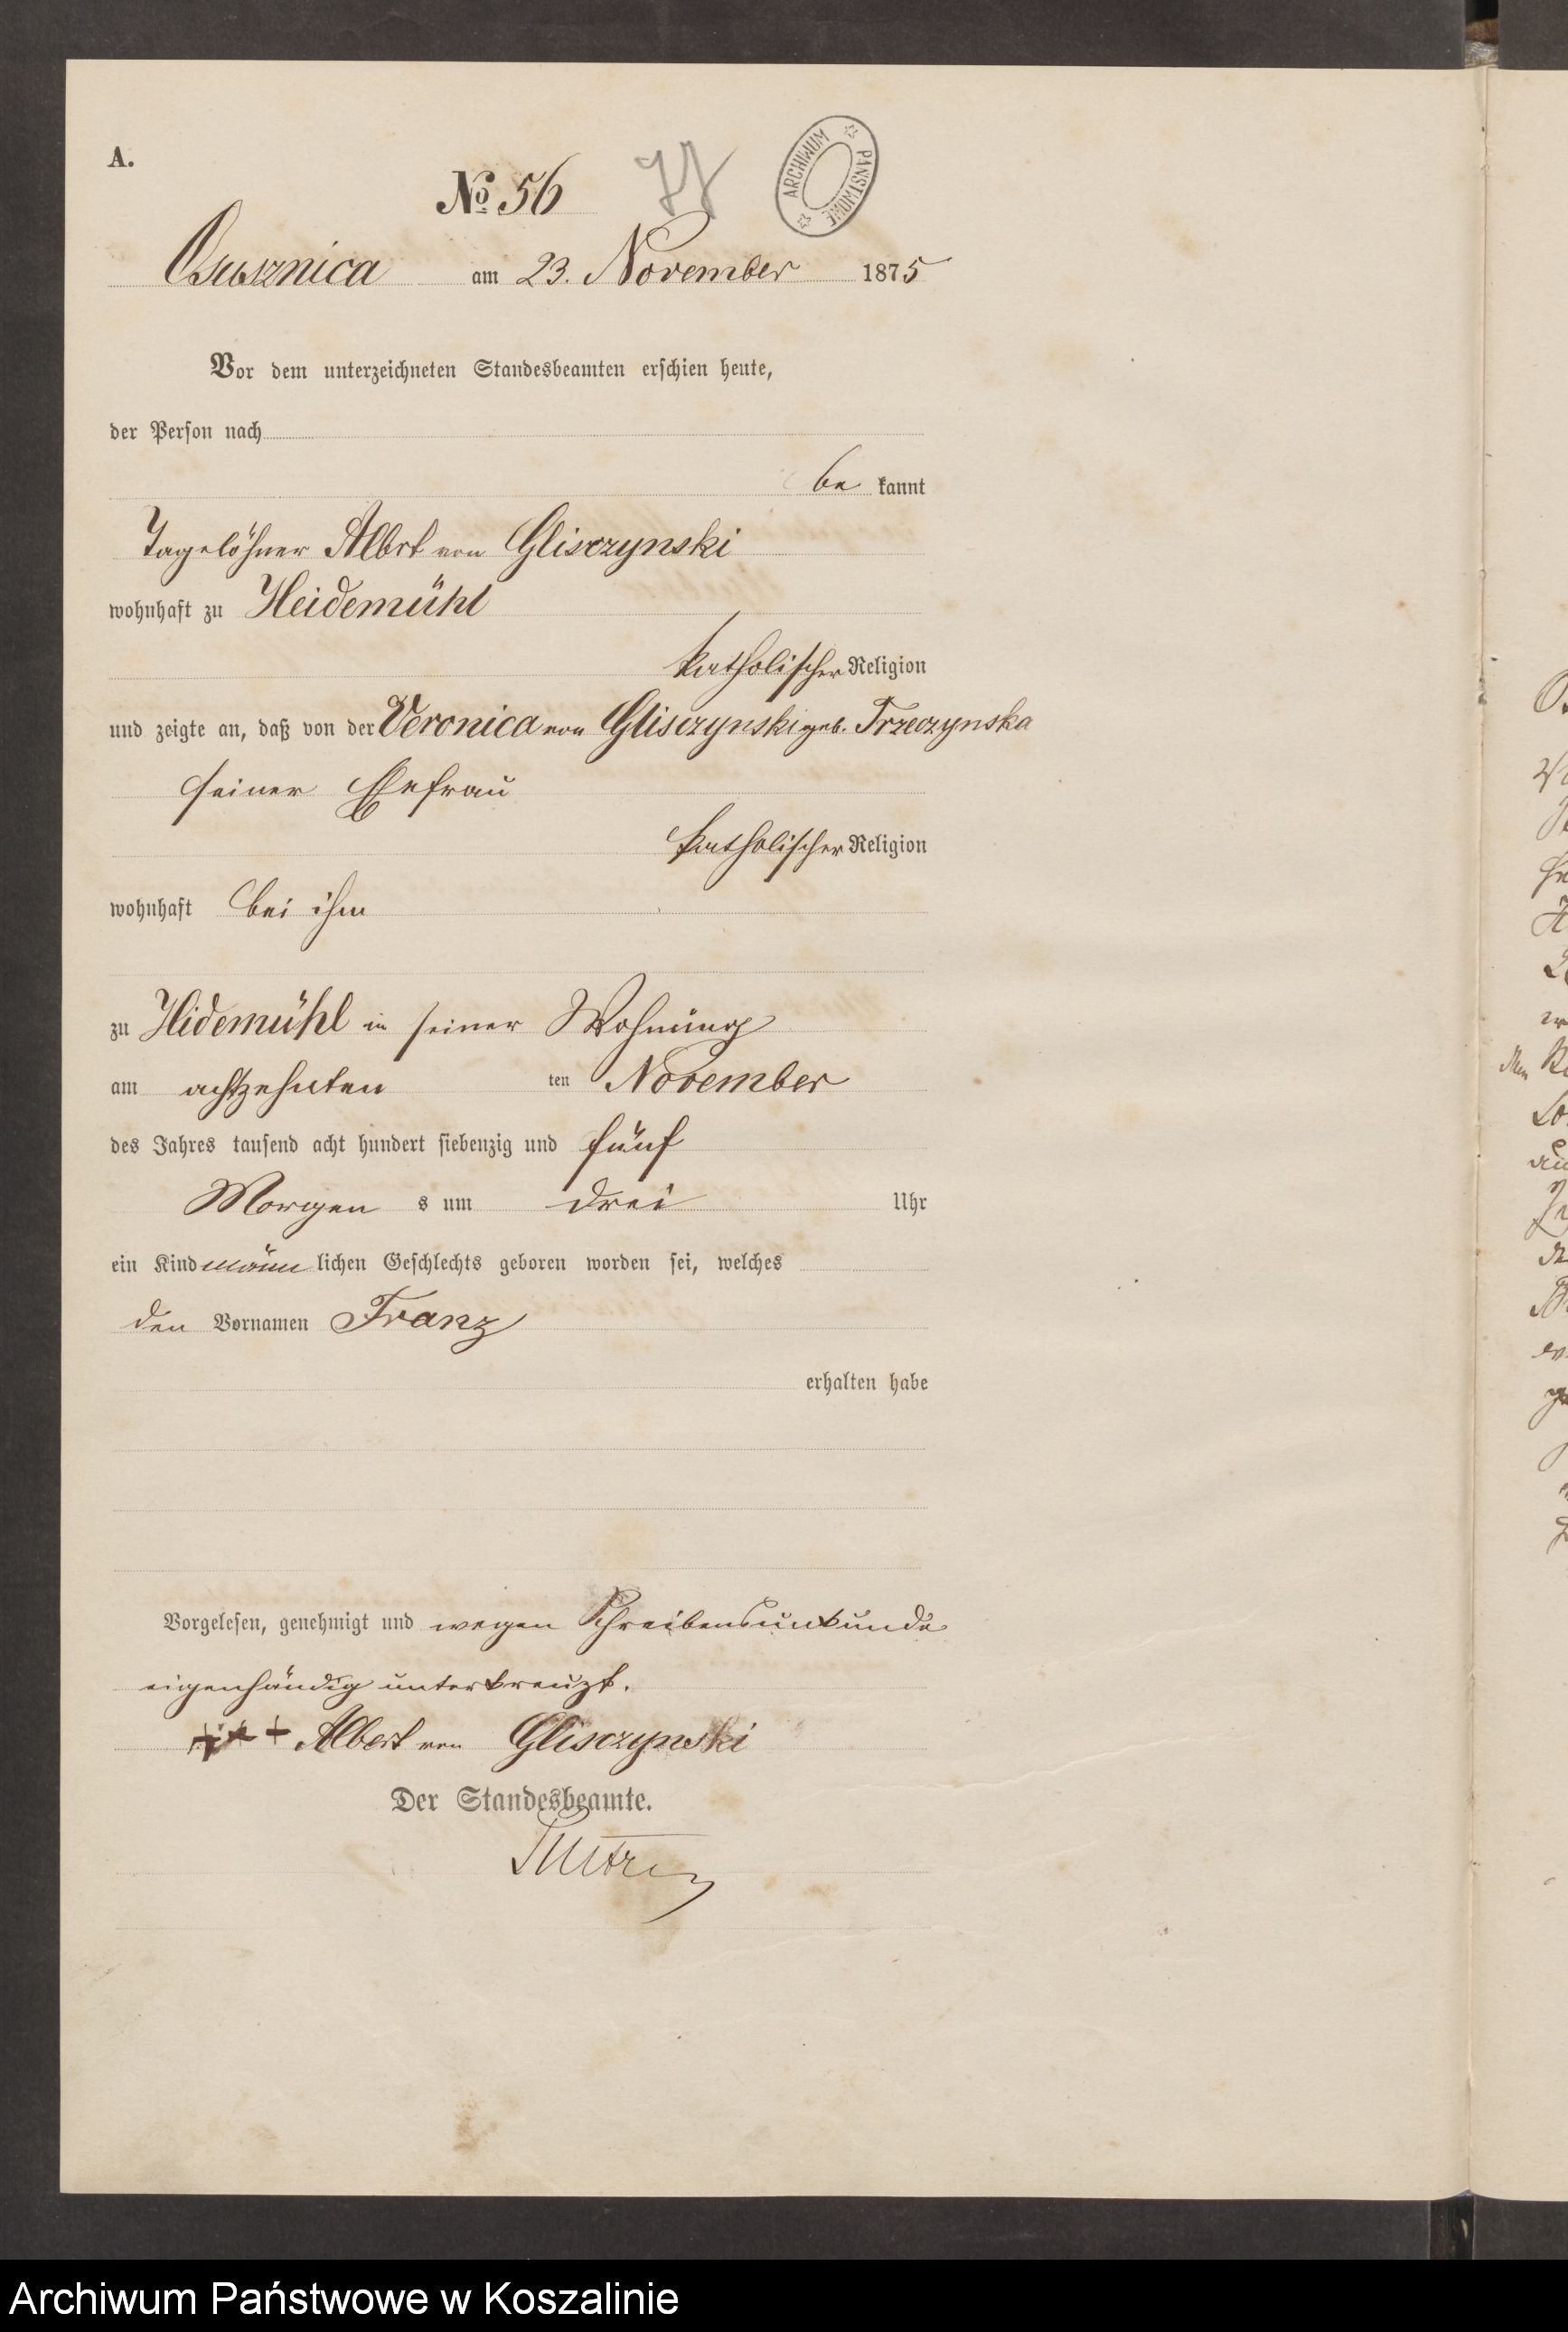 A.
ARCHIWUM PAŃSTWOWE
No 56
Osusznica am 23. November 1875
Vor dem unterzeichneten Standesbeamten erschien heute,
der Person nach
be kannt
Tagelöhner Albert von Glisczynski
wohnhaft zu Heidemühl
katholischer Religion
und zeigte an, daß von der Veronica von Glisczynski geb. Trzeczynska
seiner Ehefrau
katholischer Religion
wohnhaft bei ihm
zu Hidemühl in seiner Wohnung
am achtzehnten ten November
des Jahres tausend acht hundert siebenzig und fünf
Morgen s um drei Uhr
ein Kind männ lichen Geschlechts geboren worden sei, welches
den Vornamen Franz
erhalten habe
Vorgelesen, genehmigt und wegen Schreibensunkunde
eigenhändig unterkreuzt.
+++ Albert von Glisczynski
Der Standesbeamte.
Archiwum Państwowe w Koszalinie